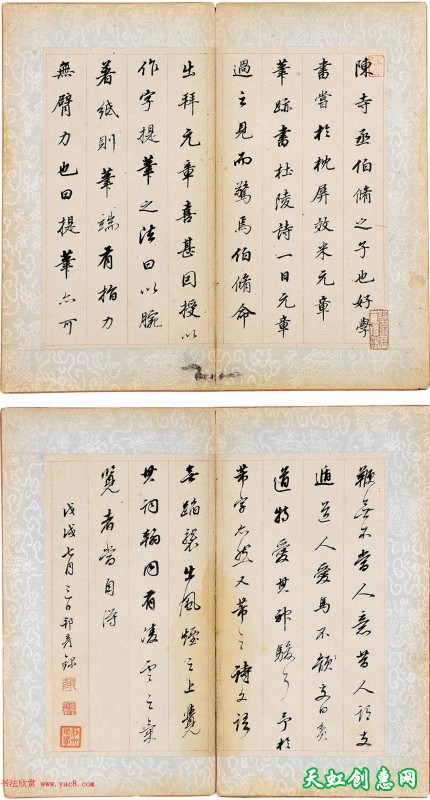 陳寺丞伯脩之子也好學
書嘗於枕屏效米元章
筆跡書杜陵詩一日元章
過之見而驚焉伯脩命
出拜元章喜甚因授以
作字提筆之法曰以腕
著紙則筆端有指力
無臂力也曰提筆亦可
不當人意昔人謂支
遁道人愛馬不韻支曰貧
道特愛其神駿耳予於
芾字亦然又芾之詩文語
無蹈襲出風煙之上覺
其詞翰同有凌雲之氣
覽者當自得
戊戌七月三日
书法欣赏 www.yac8.com
天虹创惠网